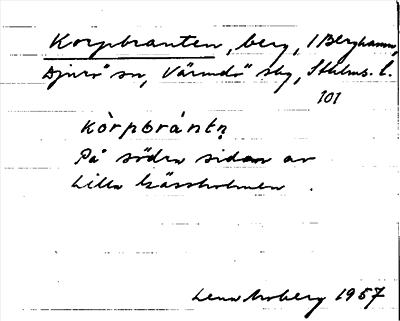 Korpbranten, berg, i Berghamn,
Djurö sn, Värmdö skg, Sthlms. l.
101
kòrpbrántn̥
På södra sidan av
Lilla
Lena Moberg 1957